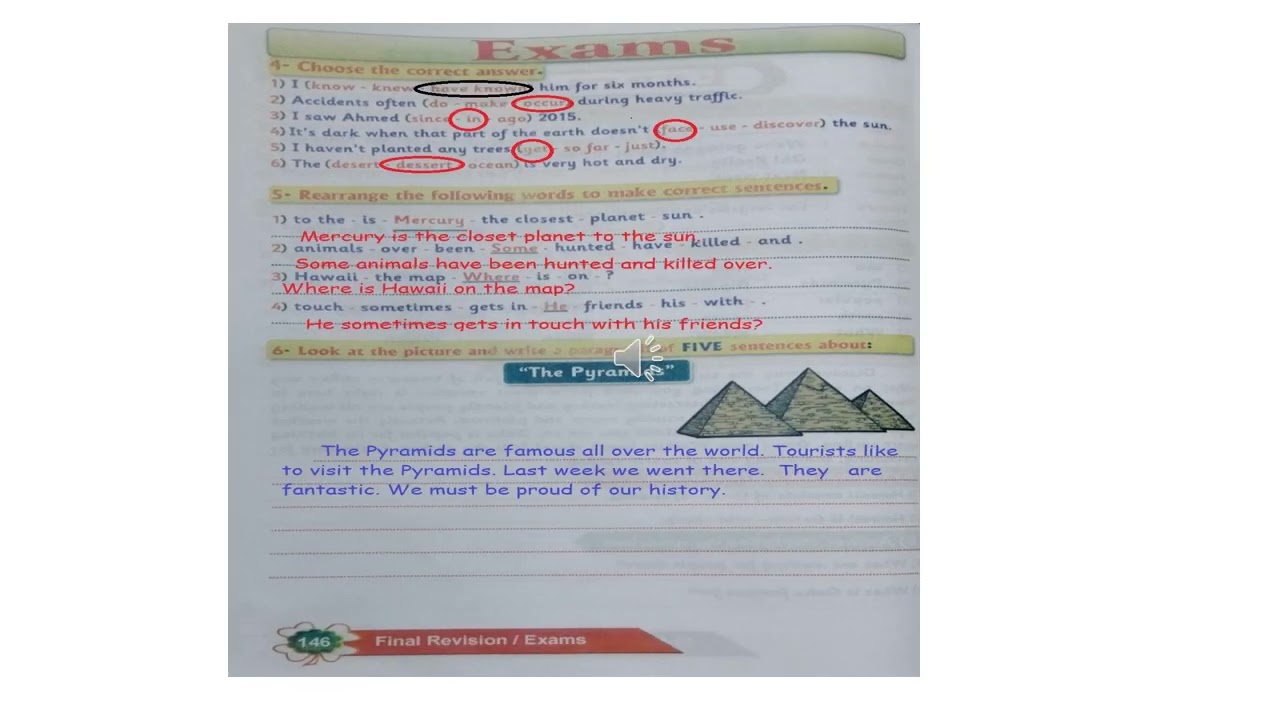 Exams
4- Choose the correct answer.
1) I (know - knew - have known) him for six months.
2) Accidents often (do - make - occur) during heavy traffic.
3) I saw Ahmed (since - in - ago) 2015.
4) It's dark when that part of the earth doesn't (face - use - discover) the sun.
5) I haven't planted any trees (yet - so far - just).
6) The (desert - dessert - ocean) is very hot and dry.
5- Rearrange the following words to make correct sentences.
1) to the - is - Mercury - the closest - planet - sun .
Mercury is the closet planet to the sun
2) animals - over - been - Some - hunted - have - killed - and .
Some animals have been hunted and killed over.
3) Hawaii - the map - Where - is - on - ?
Where is Hawaii on the map?
4) touch - sometimes - gets in - He - friends - his - with - .
He sometimes gets in touch with his friends?
6- Look at the picture and write a paragraph of FIVE sentences about:
"The Pyramids"
The Pyramids are famous all over the world. Tourists like
to visit the Pyramids. Last week we went there. They are
fantastic. We must be proud of our history.
146 Final Revision / Exams